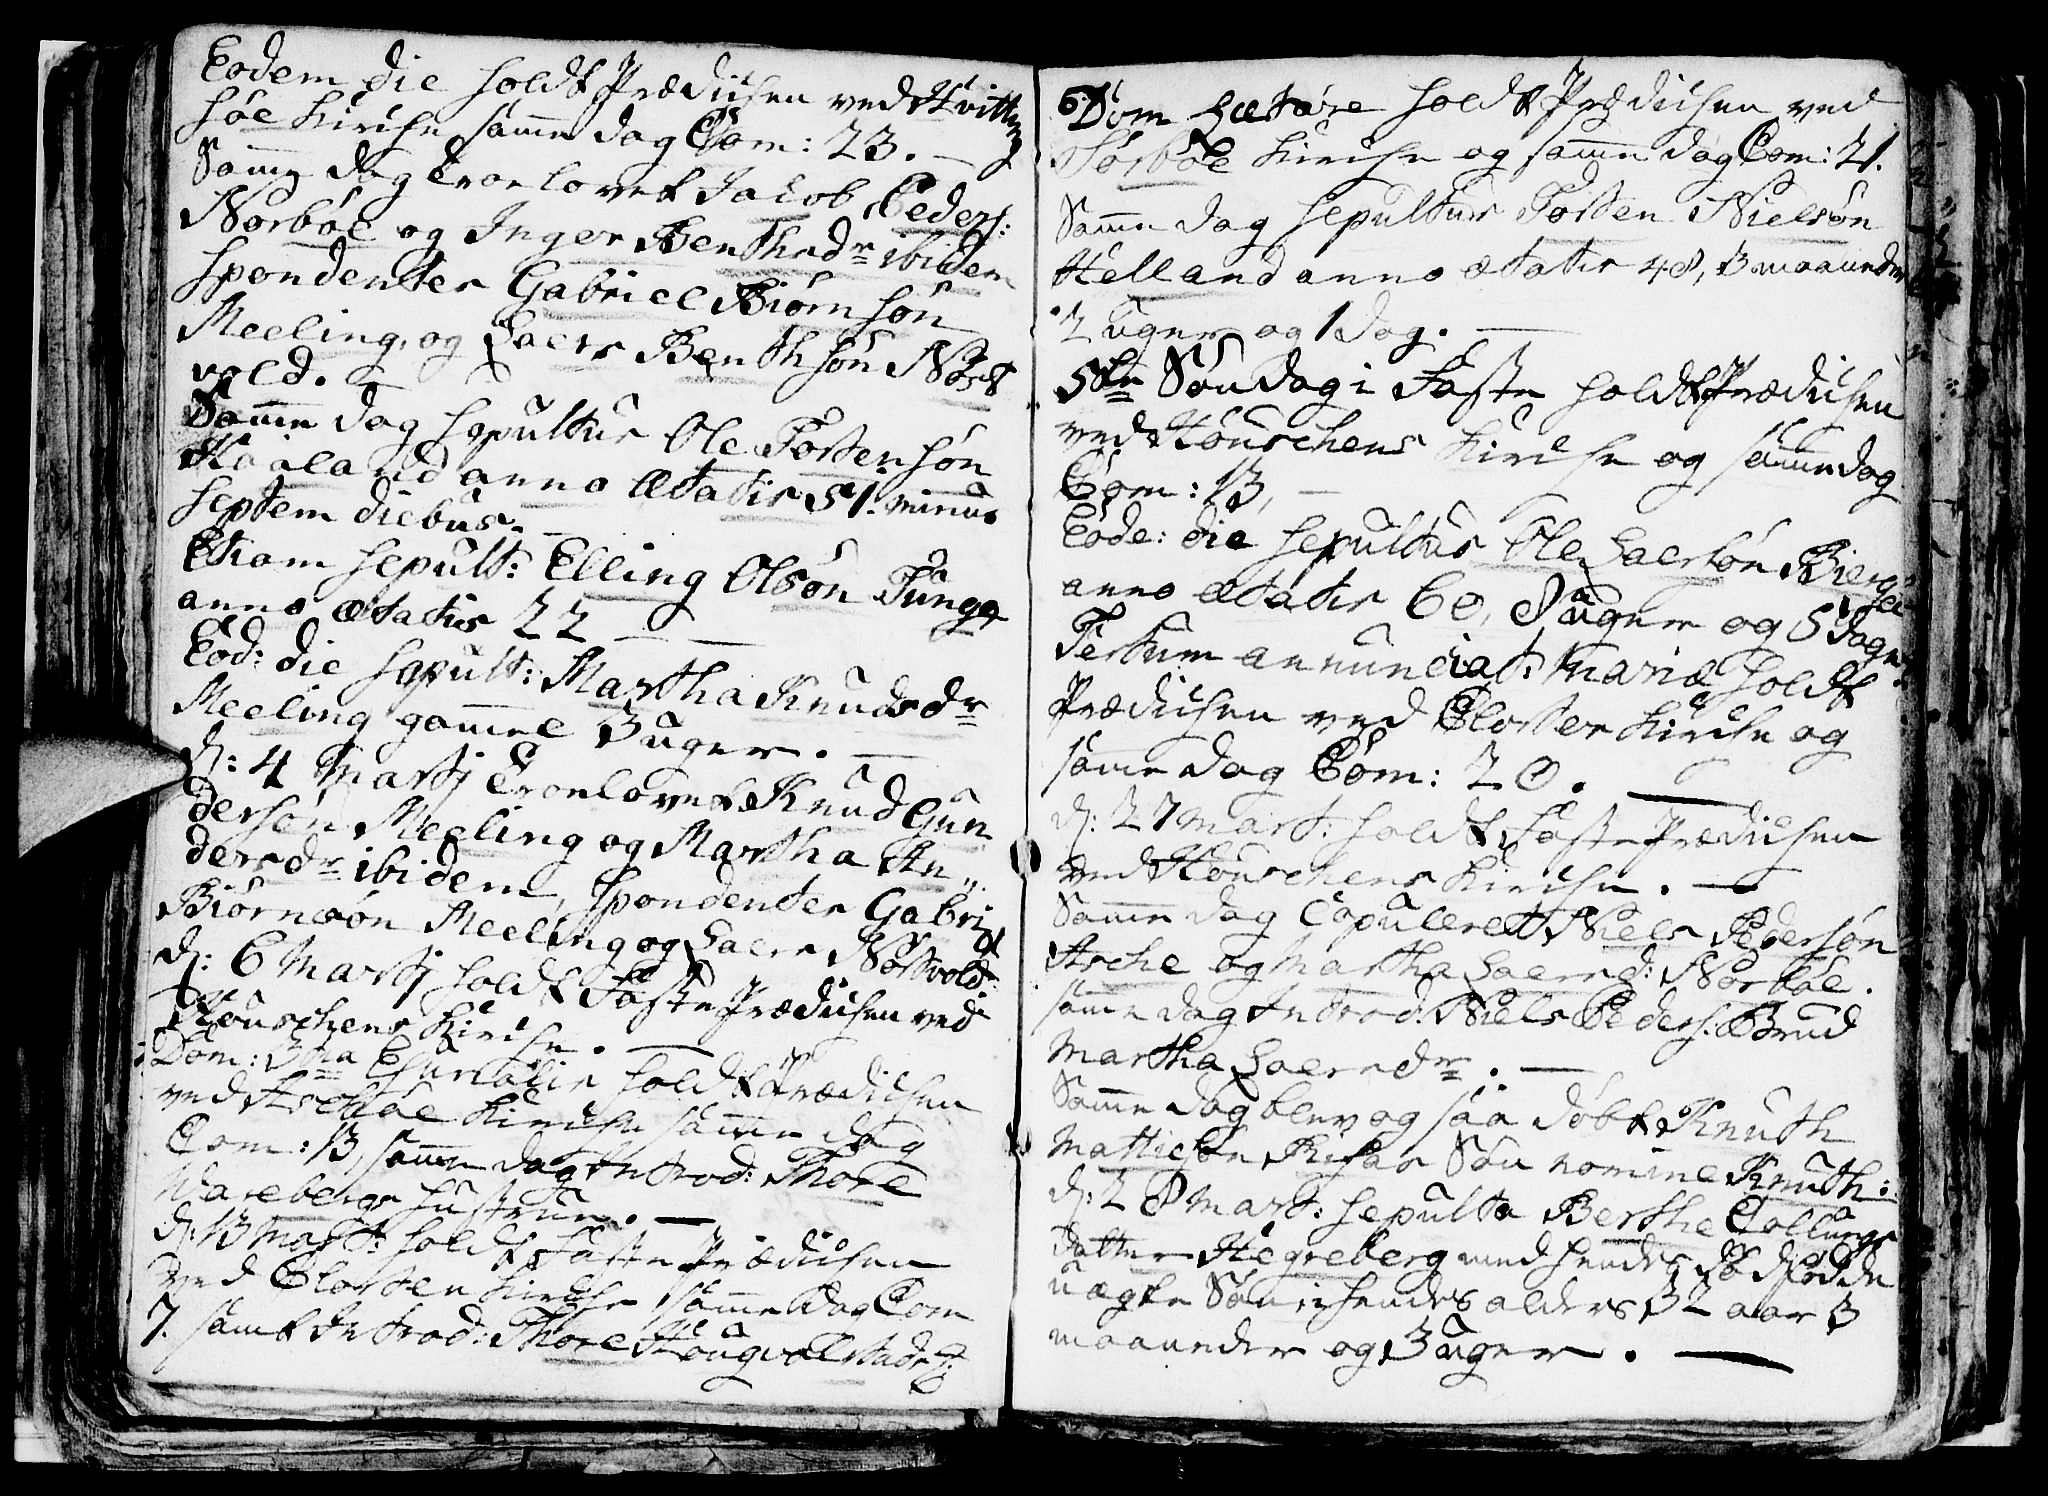 Eodem die holdt Prædichen ved Hvittings
høe Kirche samme dag Com: 23.
Samme dag troelovet Jacob Peders:
Norbøe og Inger Benthsdr ibidem
spondenter Gabriel Biørnsøn
Meeling, og Laers Benthsøn Nord
vold.
Samme dag sepultus Ole Tostensøn
Haaland anno ætatis 51. minus
septem diebus.
Etiam sepult: Elling Olsøn Tunge
anno ætatis 22
Eod: die sepult: Martha Knudsdr
Meeling gammel 3 uger.
d: 4 Martj Troelovet Knud Gun
dersøn Meeling og Martha An
dersdr ibidem, spondenter Gabriel
Biørnsøn Meeling og Laers Nortvold
d: 6 Martj holdt Faste Prædichen ved
Houschens Kirche.
Dom: 3tia Esurialis holdt Prædichen
ved Aschøe Kirche samme dag
Com: 13, samme dag Introd: Thore
Warebergs hustrue.
d: 13 Mart: holdt Faste Prædichen
ved Closter Kirche samme dag Com
7. samt Introd: Thore Hougvalstads
Dom Lætare holdt Prædichen ved
Sørbøe Kirche og samme dag Com: 21.
Samme dag sepultus Tosten Nielsøn
Helland anno ætatis 48, 3 maaneder
2 uger og 1 Dag.
5te Søndag i Faste holdt Prædichen
ved Houschens Kirche og samme dag
Com: 13,
Eode: die sepultus Ole Laersøn Bierge
anno ætatis 60, 8 uger og 5 dage
Festum annunciat: Mariæ holdt
Prædichen ved Closter Kirche og
samme dag Com: 20.
d: 27 Mart: holdt Faste Prædichen
ved Houschens Kirche.
Samme dag Copuleret Niels Pedersøn
Asche og Martha Laersd: Norbøe.
samme dag Introd: Niels Peders: Brud
Martha Laersdr.
Samme dag blev og saa døbt Knuth
Mattiesøn Søn nomine Knuth:
d: 28 Mart: sepulta Berthe Collungs
datter Hegreberg med hendes død fødde
uægte Søn i hendes alders 32 aar 3
maaneder og 3 uger.